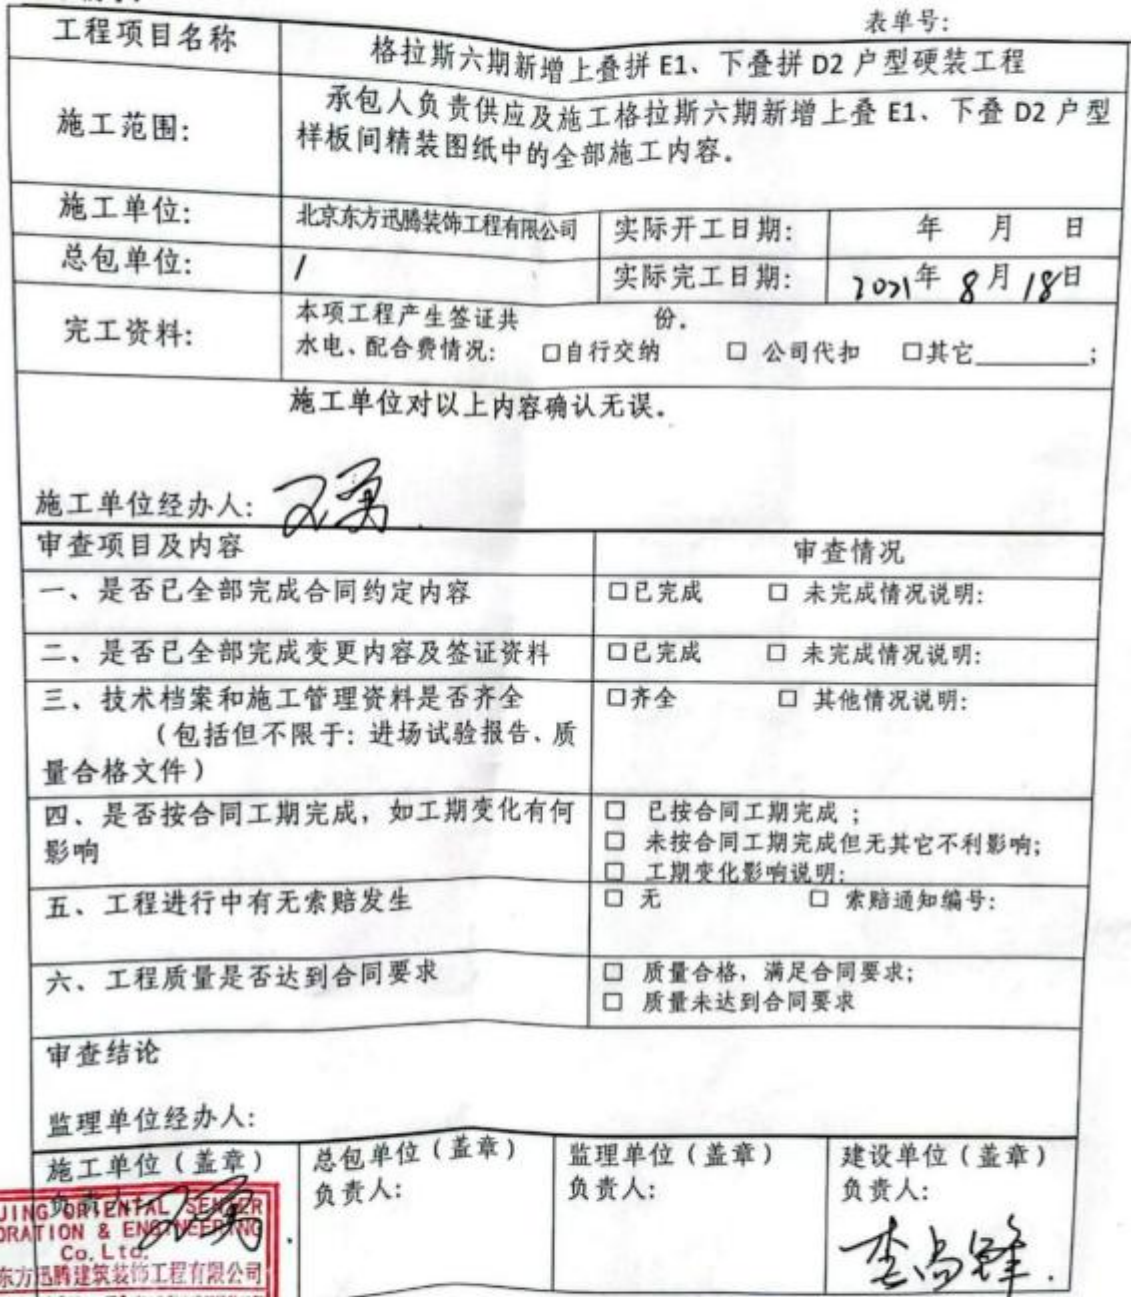 表单号:
工程项目名称
格拉斯六期新增上叠拼 E1、下叠拼 D2 户型硬装工程
施工范围:
承包人负责供应及施工格拉斯六期新增上叠 E1、下叠 D2 户型
样板间精装图纸中的全部施工内容。
施工单位: 北京东方迅腾装饰工程有限公司 实际开工日期: 年 月 日
总包单位: / 实际完工日期: 2021年 8月 18日
完工资料:
本项工程产生签证共 份。
水电、配合费情况: □自行交纳 □ 公司代扣 □其它________;
施工单位对以上内容确认无误。
施工单位经办人:
审查项目及内容 审查情况
一、是否已全部完成合同约定内容 □已完成 □ 未完成情况说明:
二、是否已全部完成变更内容及签证资料 □已完成 □ 未完成情况说明:
三、技术档案和施工管理资料是否齐全 □齐全 □ 其他情况说明:
(包括但不限于: 进场试验报告、质
量合格文件)
四、是否按合同工期完成, 如工期变化有何
影响
□ 已按合同工期完成;
□ 未按合同工期完成但无其它不利影响;
□ 工期变化影响说明:
五、工程进行中有无索赔发生 □ 无 □ 索赔通知编号:
六、工程质量是否达到合同要求
□ 质量合格, 满足合同要求;
□ 质量未达到合同要求
审查结论
监理单位经办人:
施工单位(盖章)
负责人:
总包单位(盖章)
负责人:
监理单位(盖章)
负责人:
建设单位(盖章)
负责人:
李尚锋
JING ORIENTAL
ORATION & ENGINEERING
Co. Ltd.
东方迅腾建筑装饰工程有限公司